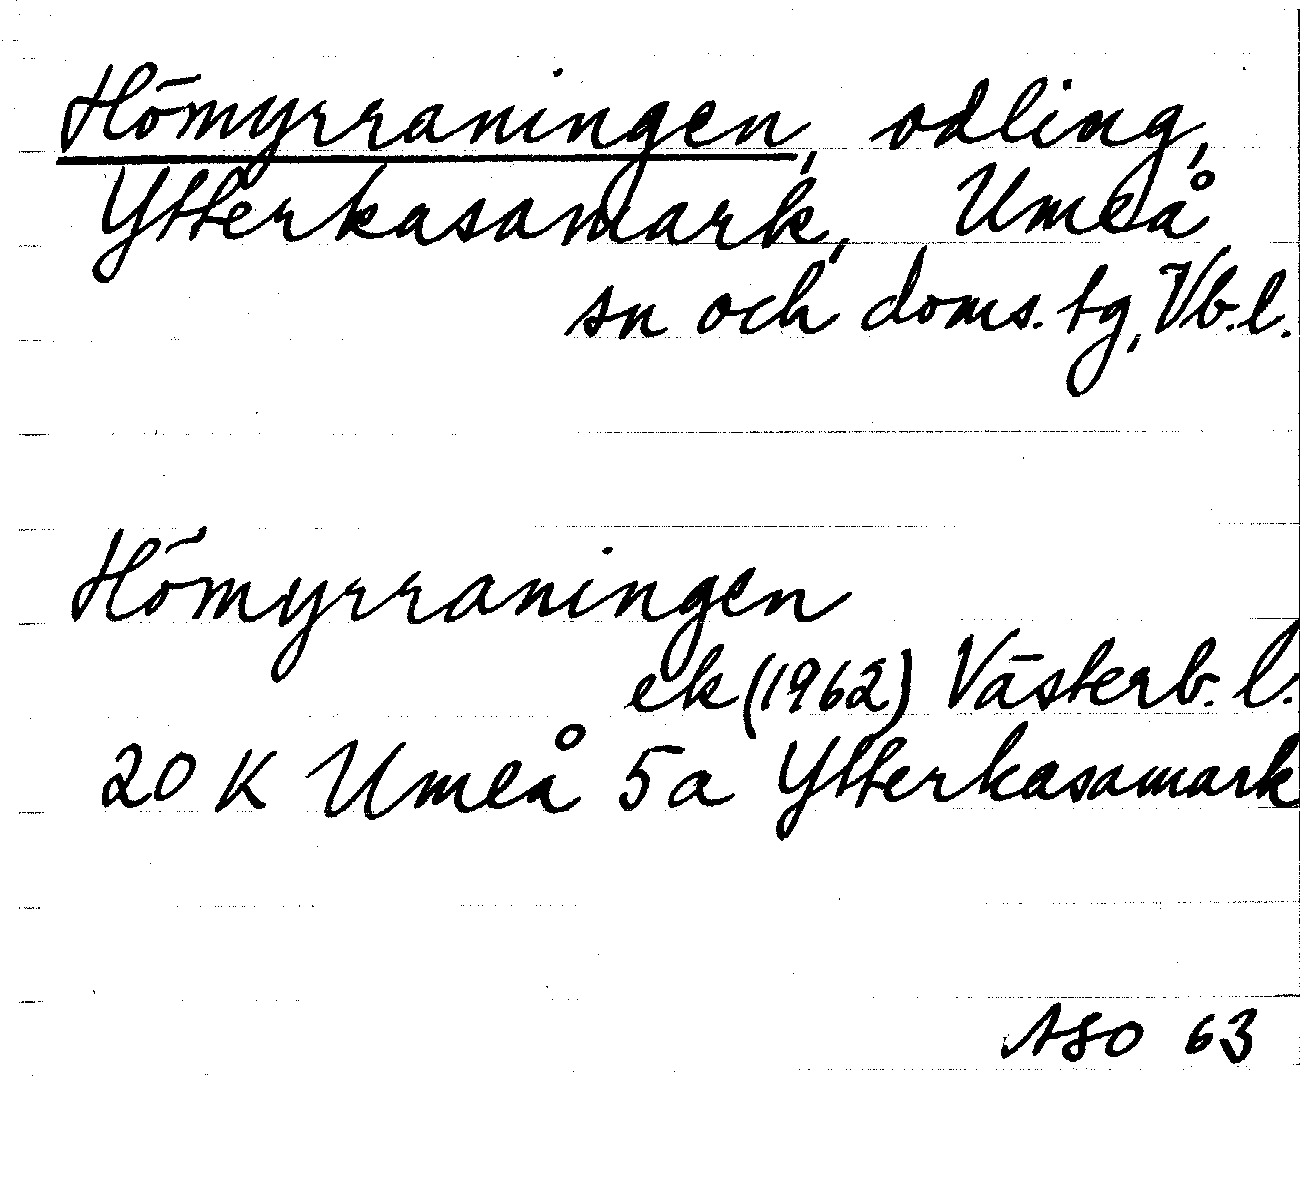 Hömyrraningen, odling,
Ytterkasamark, Umeå
sn och doms. tg, Vb. l.
Hömyrraningen
ek (1962) Västerb. l.
20 K Umeå 5a Ytterkasamark
ASO 63